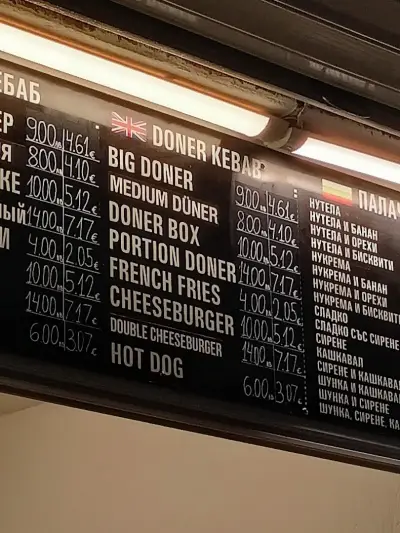 ЕБАБ
ЕР 9.00лв 4.61€
ИЯ 8.00 4.10€
КЕ 10.00 5.12€
НЫЙ 14.00 7.17€
И 4.00 2.05€
10.00 5.12€
14.00 7.17€
6.00 3.07€
DONER KEBAB
BIG DONER 9.00лв 4.61€
MEDIUM DÜNER 8.00 4.10€
DONER BOX 10.00 5.12€
PORTION DONER 14.00 7.17€
FRENCH FRIES 4.00 2.05€
CHEESEBURGER 10.00 5.12€
DOUBLE CHEESEBURGER 14.00 7.17€
HOT DOG 6.00лв 3.07€
ПАЛАЧ
НУТЕЛА
НУТЕЛА И БАНАН
НУТЕЛА И ОРЕХИ
НУТЕЛА И БИСКВИТИ
НУКРЕМА
НУКРЕМА И БАНАН
НУКРЕМА И ОРЕХИ
НУКРЕМА И БИСКВИТИ
СЛАДКО
СЛАДКО СЪС СИРЕНЕ
СИРЕНЕ
КАШКАВАЛ
СИРЕНЕ И КАШКАВАЛ
ШУНКА И КАШКАВАЛ
ШУНКА И СИРЕНЕ
ШУНКА, СИРЕНЕ, КА